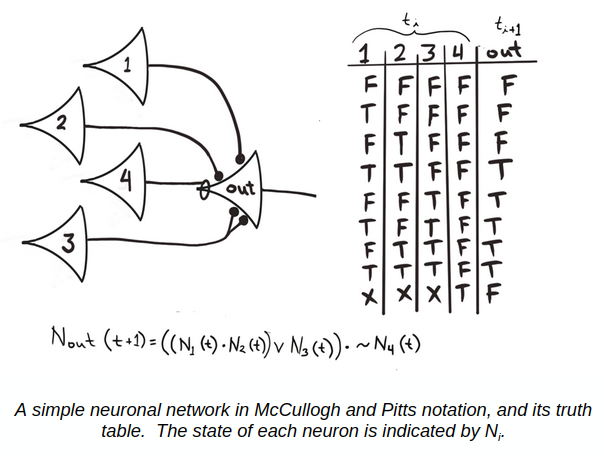 1
2
4
3
out
t_i t_{i+1}
1 2 3 4 out
F F F F F
T F F F F
F T F F F
T T F F T
F F T F T
T F T F T
F T T F T
T T T F T
X X X T F
N_out (t+1) = ((N_1 (t) · N_2 (t)) ∨ N_3 (t)) · ~ N_4 (t)
A simple neuronal network in McCullogh and Pitts notation, and its truth
table. The state of each neuron is indicated by N_i.